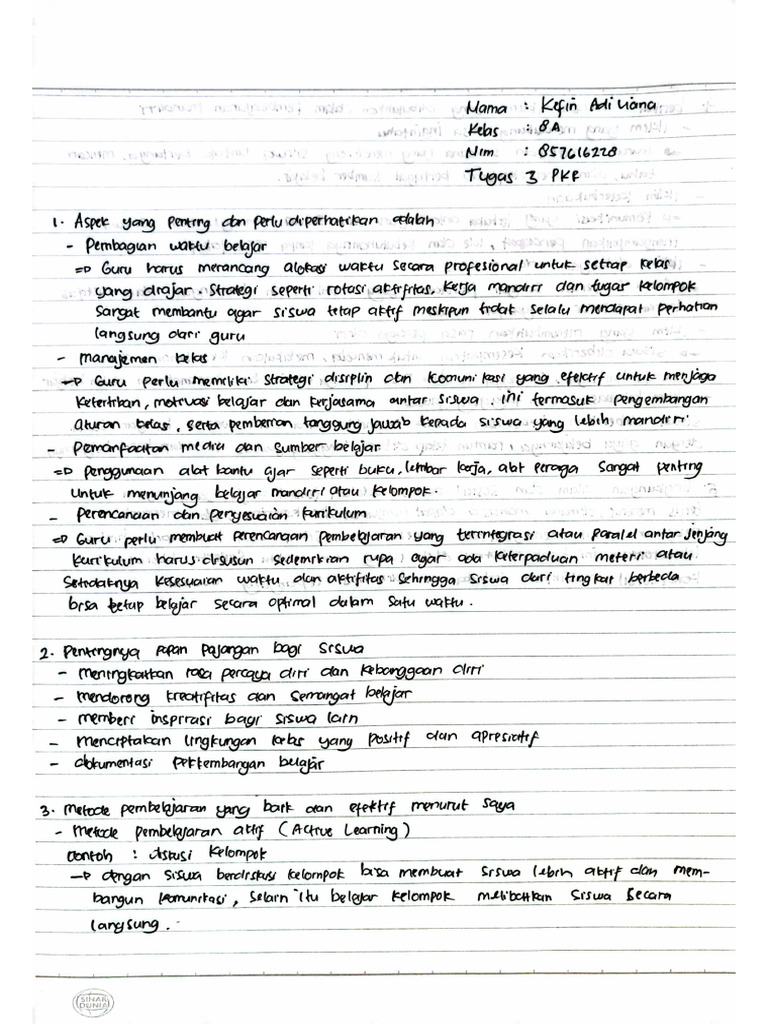 Nama : Kefin Adi Liana
Kelas : 8A
Nim : 857616228
Tugas 3 PKR
1. Aspek yang penting dan perlu diperhatikan adalah
- Pembagian waktu belajar
=> Guru harus merancang alokasi waktu secara profesional untuk setiap kelas
yang diajar. Strategi seperti rotasi aktifitas, kerja mandiri dan tugas kelompok
sangat membantu agar siswa tetap aktif meskipun tidak selalu mendapat perhatian
langsung dari guru
- manajemen kelas
-> Guru perlu memiliki strategi disiplin dan komunikasi yang efektif untuk menjaga
ketertiban, motivasi belajar dan kerjasama antar siswa. ini termasuk pengembangan
aturan kelas, serta pemberian tanggung jawab kepada siswa yang lebih mandiri.
- Pemanfaatan media dan sumber belajar
=> penggunaan alat bantu ajar seperti buku, lembar kerja, alat peraga sangat penting
untuk menunjang belajar mandiri atau kelompok.
- perencanaan dan penyesuaian kurikulum
=> Guru perlu membuat perencanaan pembelajaran yang terintegrasi atau paralel antar jenjang
kurikulum harus disusun sedemikian rupa agar ada keterpaduan meteri atau
setidaknya kesesuaian waktu dan aktifitas sehingga siswa dari tingkat berbeda
bisa tetap belajar secara optimal dalam satu waktu.
2. Pentingnya papan pajangan bagi siswa
- meningkatkan rasa percaya diri dan kebanggaan diri
- mendorong kreatifitas dan semangat belajar
- memberi inspirasi bagi siswa lain
- menciptakan lingkungan kelas yang positif dan apresiatif
- dokumentasi perkembangan belajar
3. metode pembelajaran yang baik dan efektif menurut saya
- metode pembelajaran aktif (Active Learning)
contoh : diskusi kelompok
-> dengan siswa berdiskusi kelompok bisa membuat siswa lebih aktif dan mem-
bangun komunikasi, selain itu belajar kelompok melibatkan siswa secara
langsung.
SINAR
DUNIA